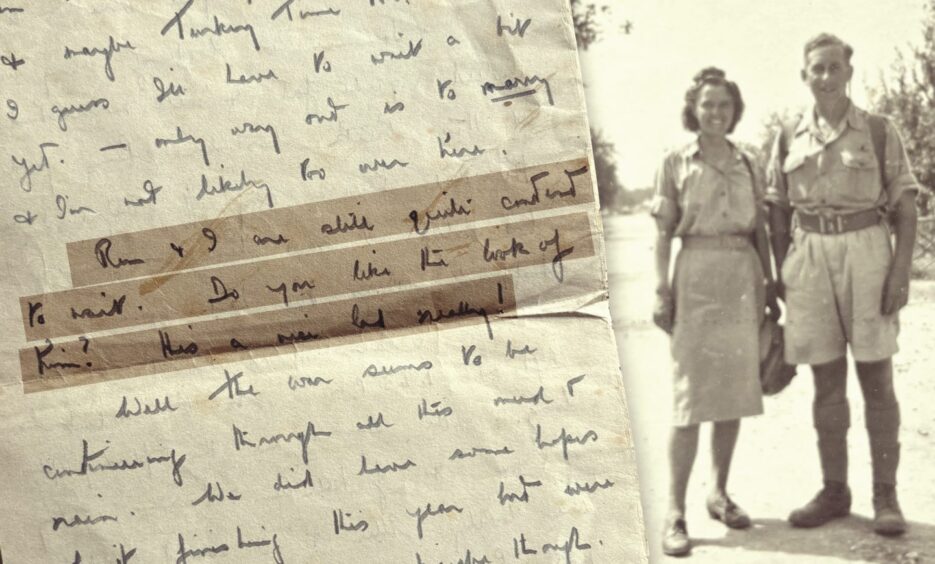 & maybe
I guess I'll have to wait a bit
yet. — only way out is to marry
& I'm not likely to over here.
& I are still quite content
to wait. Do you like the look of
him? He's a nice lad really!
Well the war seems to be
continuing through all this mud &
rain. We did have some hopes
of it finishing this year but were
though.